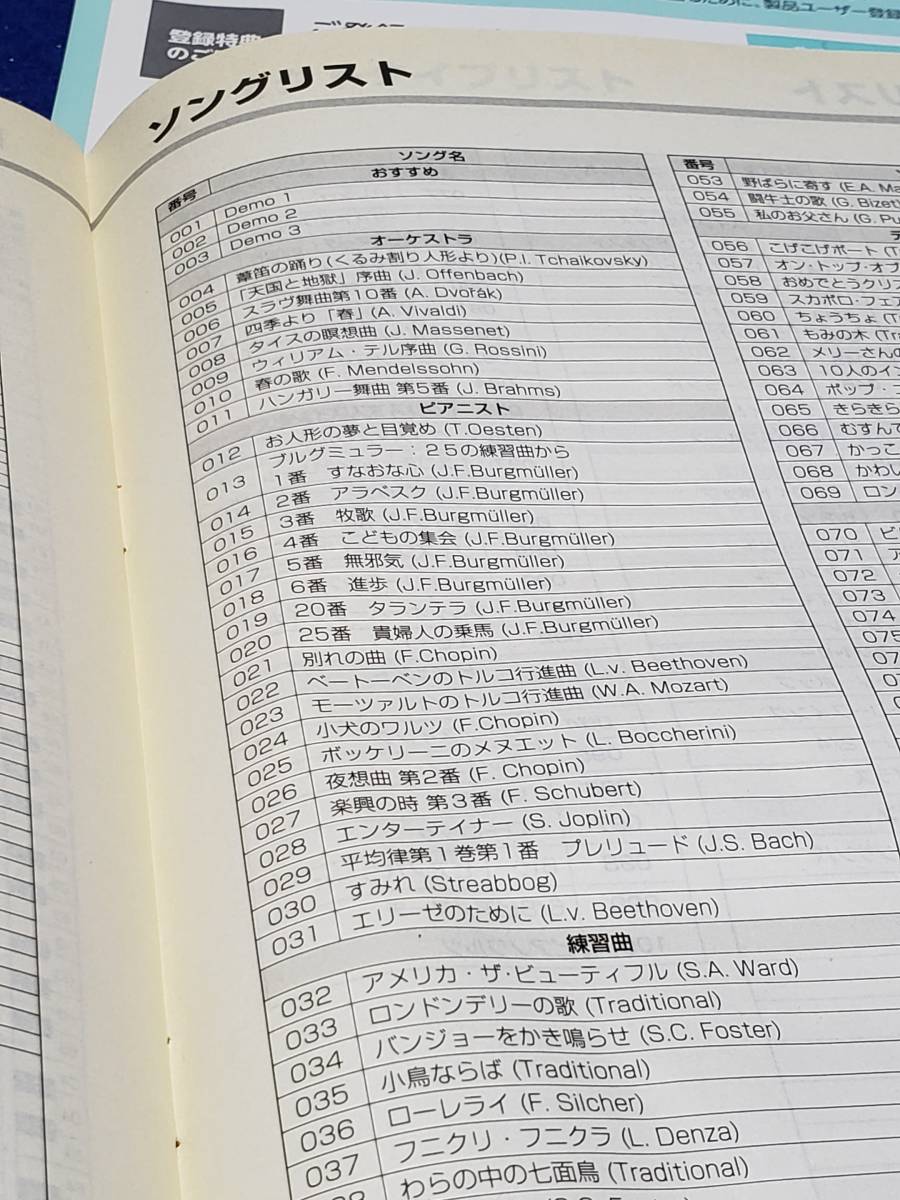 製品ユーザー登録
登録特典
ソングリスト
番号 ソング名
おすすめ
001 Demo 1
002 Demo 2
003 Demo 3
オーケストラ
004 葦笛の踊り(くるみ割り人形より)(P.I. Tchaikovsky)
005 「天国と地獄」序曲 (J. Offenbach)
006 スラヴ舞曲第10番 (A. Dvořák)
007 四季より「春」(A. Vivaldi)
008 タイスの瞑想曲 (J. Massenet)
009 ウィリアム・テル序曲 (G. Rossini)
010 春の歌 (F. Mendelssohn)
011 ハンガリー舞曲 第5番 (J. Brahms)
ピアニスト
012 お人形の夢と目覚め (T.Oesten)
013 ブルグミュラー：25の練習曲から
1番 すなおな心 (J.F.Burgmüller)
014 2番 アラベスク (J.F.Burgmüller)
015 3番 牧歌 (J.F.Burgmüller)
016 4番 こどもの集会 (J.F.Burgmüller)
017 5番 無邪気 (J.F.Burgmüller)
018 6番 進歩 (J.F.Burgmüller)
019 20番 タランテラ (J.F.Burgmüller)
020 25番 貴婦人の乗馬 (J.F.Burgmüller)
021 別れの曲 (F.Chopin)
022 ベートーベンのトルコ行進曲 (L.v. Beethoven)
023 モーツァルトのトルコ行進曲 (W.A. Mozart)
024 小犬のワルツ (F.Chopin)
025 ボッケリーニのメヌエット (L. Boccherini)
026 夜想曲 第2番 (F. Chopin)
027 楽興の時 第3番 (F. Schubert)
028 エンターテイナー (S. Joplin)
029 平均律第1巻第1番 プレリュード (J.S. Bach)
030 すみれ (Streabbog)
031 エリーゼのために (L.v. Beethoven)
練習曲
032 アメリカ・ザ・ビューティフル (S.A. Ward)
033 ロンドンデリーの歌 (Traditional)
034 バンジョーをかき鳴らせ (S.C. Foster)
035 小鳥ならば (Traditional)
036 ローレライ (F. Silcher)
037 フニクリ・フニクラ (L. Denza)
わらの中の七面鳥 (Traditional)
番号
053 野ばらに寄す (E.A. Ma
054 闘牛士の歌 (G. Bizet
055 私のお父さん (G. Pu
056 こげこげボート (T
057 オン・トップ・オブ
058 おめでとうクリ
059 スカボロ・フェア
060 ちょうちょ (T
061 もみの木 (Tra
062 メリーさんの
063 10人のイン
064 ポップ・
065 きらきら
066 むすんで
067 かっこ
068 かわい
069 ロン
070 ビ
071 ア
072
073
074
075